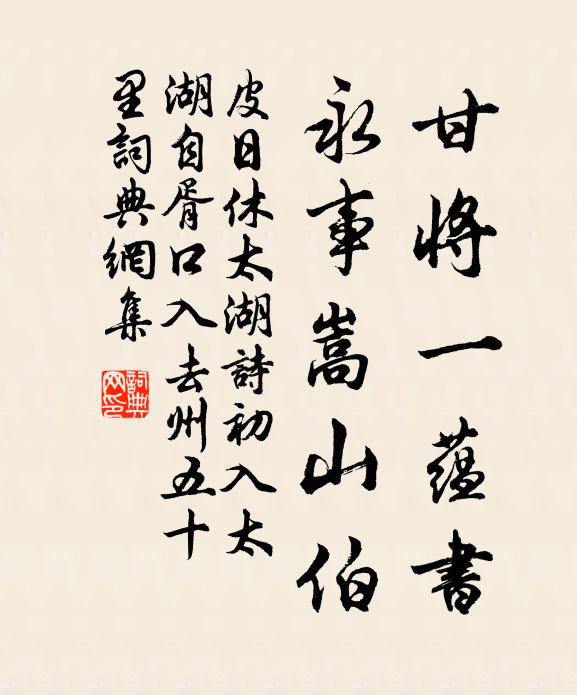 甘將一蘊書
永事嵩山伯
皮日休太湖詩初入太
湖自胥口入去州五十
里詞典網集
詞典
网印